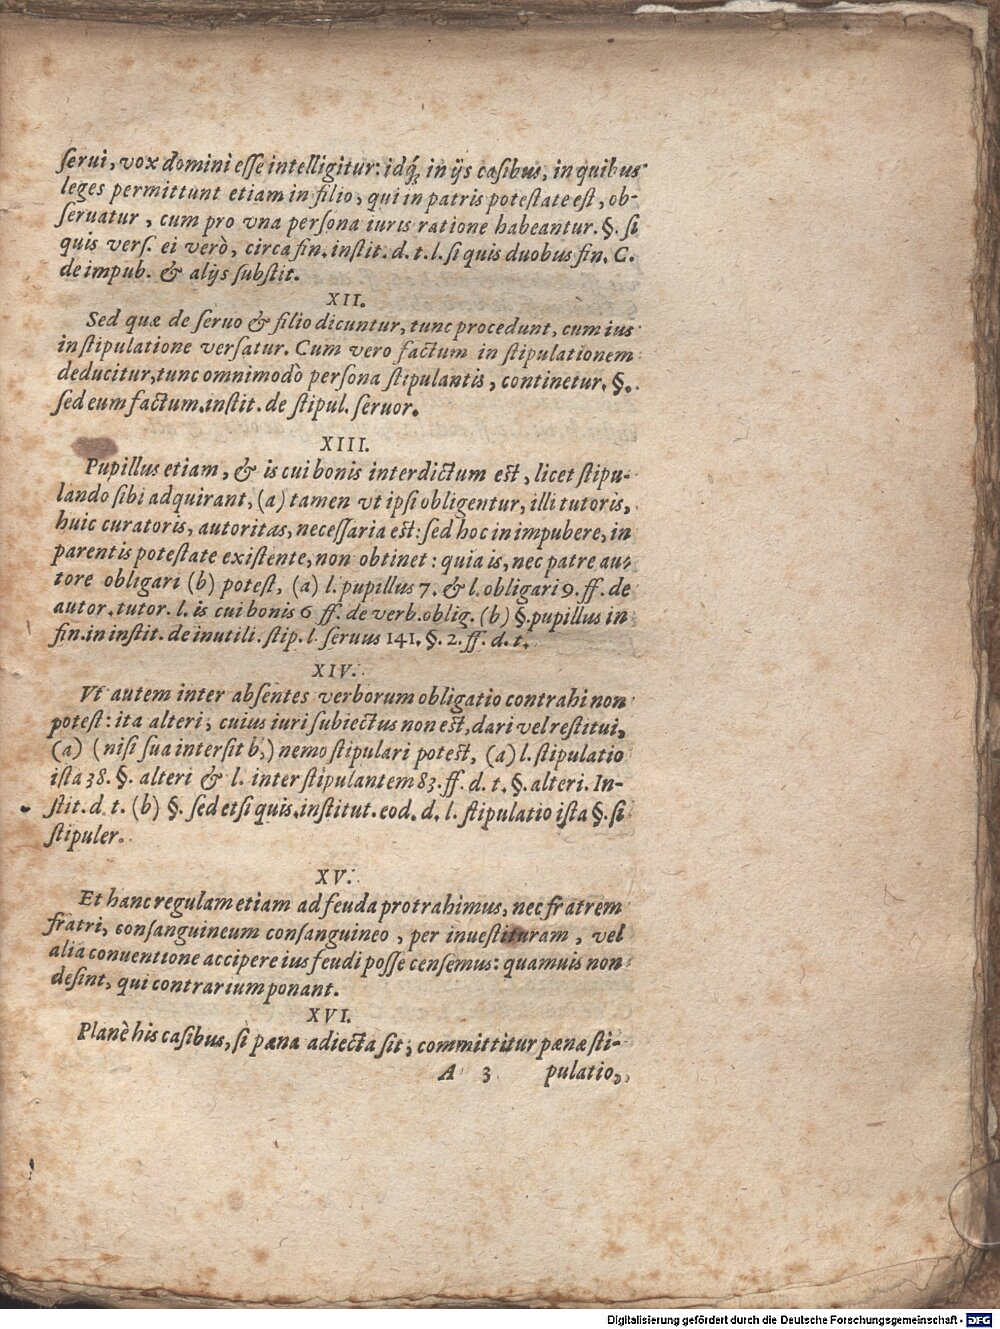 serui, vox domini esse intelligitur: idq́; in ijs casibus, in quibus
leges permittunt etiam in filio, qui in patris potestate est, ob-
seruatur, cum pro vna persona iuris ratione habeantur. §. si
quis vers. ei verò, circa fin. instit. d. t. l. si quis duobus fin. C.
de impub. & alijs substit.
XII.
Sed quæ de seruo & filio dicuntur, tunc procedunt, cum ius
in stipulatione versatur. Cum vero factum in stipulationem
deducitur, tunc omnimodò persona stipulantis, continetur. §.
sed eum factum. instit. de stipul. seruor.
XIII.
Pupillus etiam, & is cui bonis interdictum est, licet stipu-
lando sibi adquirant, (a) tamen vt ipsi obligentur, illi tutoris,
huic curatoris, autoritas, necessaria est: sed hoc in impubere, in
parentis potestate existente, non obtinet: quia is, nec patre au-
tore obligari (b) potest, (a) l. pupillus 7. & l. obligari 9. ff. de
autor. tutor. l. is cui bonis 6 ff. de verb. oblig. (b) §. pupillus in
fin. in instit. de inutili. stip. l. seruus 141. §. 2. ff. d. t.
XIV.
Vt autem inter absentes verborum obligatio contrahi non
potest: ita alteri, cuius iuri subiectus non est, dari vel restitui,
(a) (nisi sua intersit b,) nemo stipulari potest, (a) l. stipulatio
ista 38. §. alteri & l. inter stipulantem 83. ff. d. t. §. alteri. In-
stit. d. t. (b) §. sed etsi quis. institut. eod. d. l. stipulatio ista §. si
stipuler.
XV.
Et hanc regulam etiam ad feuda protrahimus, nec fratrem
fratri, consanguineum consanguineo, per inuestituram, vel
alia conuentione accipere ius feudi posse censemus: quamuis non
desint, qui contrarium ponant.
XVI.
Planè his casibus, si pœna adiecta sit, committitur pœnæ sti-
A 3 pulatio,
Digitalisierung gefördert durch die Deutsche Forschungsgemeinschaft - DFG